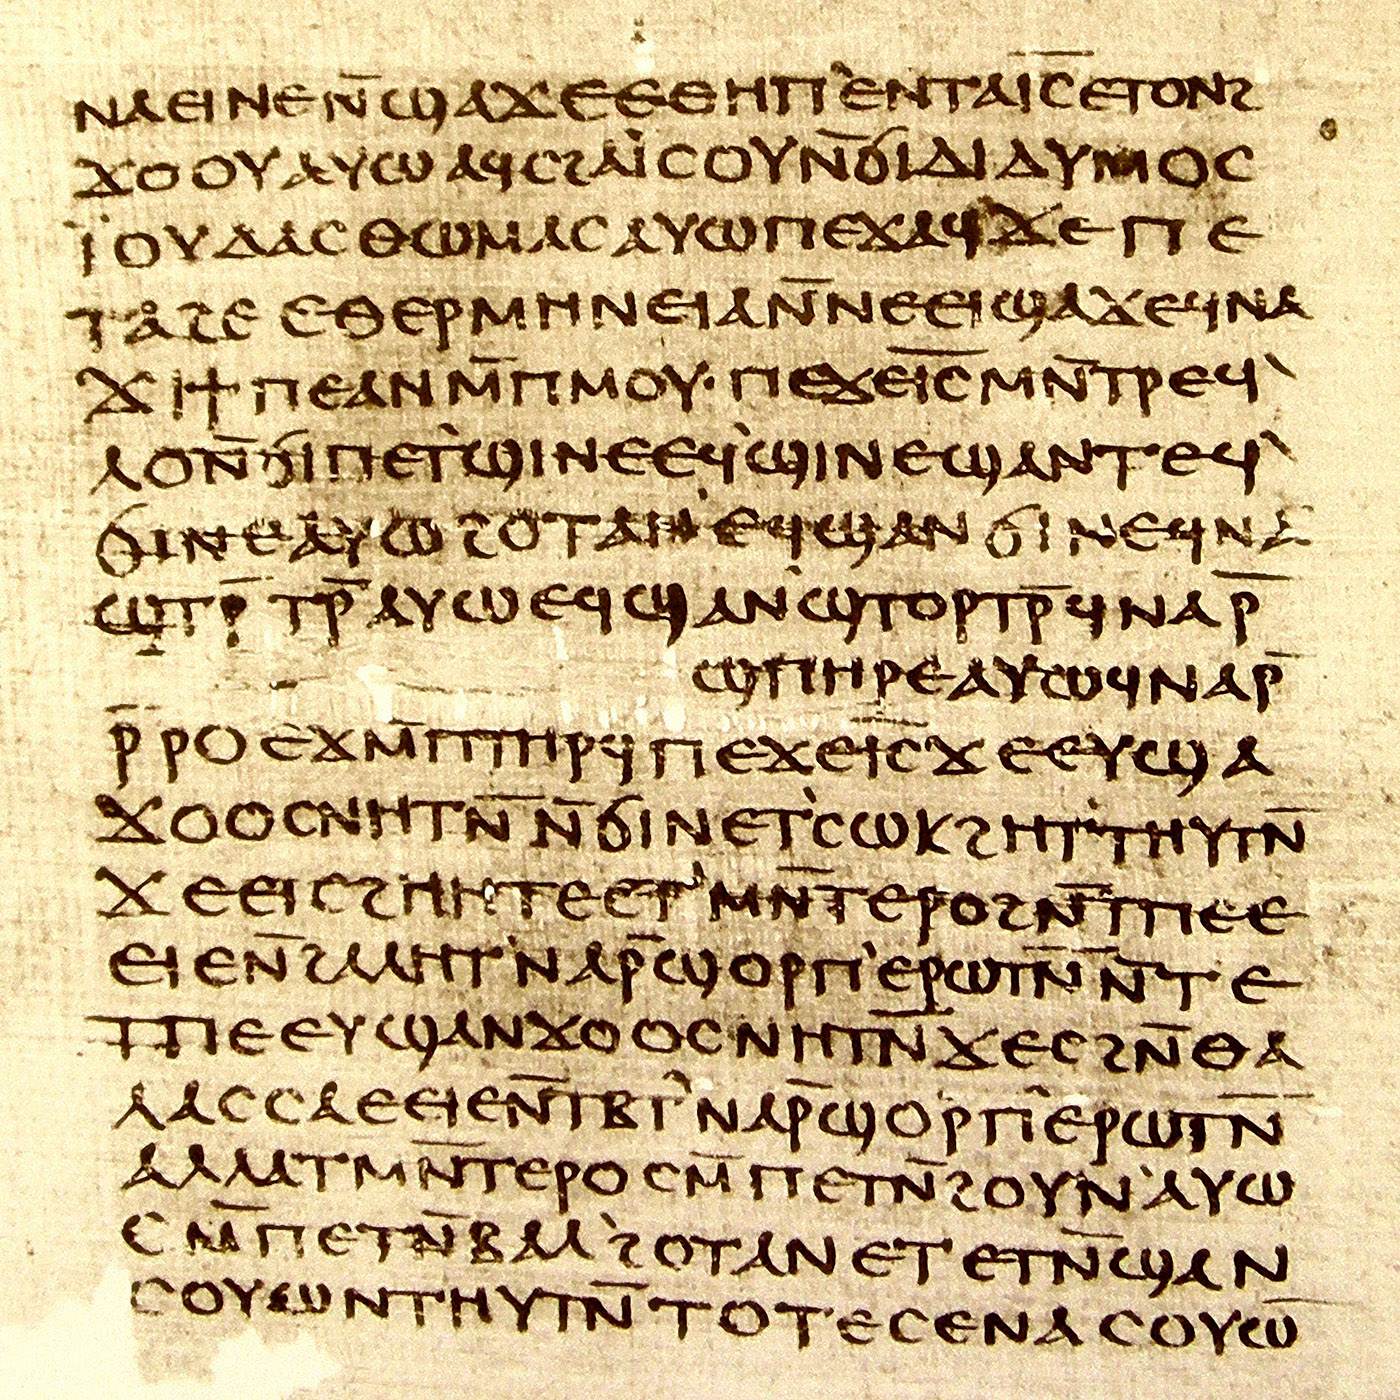 ⲛⲁⲉⲓⲛⲉⲛ̅ϣⲁϫⲉⲉⲑⲏⲡ`ⲉⲛⲧⲁⲓ̅ⲥ̅ⲉⲧⲟⲛϩ
ϫⲟⲟⲩⲁⲩⲱⲁϥⲥϩⲁⲓ̈ⲥⲟⲩⲛ̅ϭⲓⲇⲓⲇⲩⲙⲟⲥ
ⲓ̈ⲟⲩⲇⲁⲥⲑⲱⲙⲁⲥⲁⲩⲱⲡⲉϫⲁϥϫⲉⲡⲉ
ⲧⲁϩⲉⲉⲑⲉⲣⲙⲏⲛⲉⲓⲁⲛ̅ⲛⲉⲉⲓϣⲁϫⲉϥⲛⲁ
ϫⲓϯⲡⲉⲁⲛⲙ̅ⲡⲙⲟⲩ·ⲡⲉϫⲉⲓ̅ⲥ̅ⲙⲛ̅ⲧⲣⲉϥ`
ⲗⲟⲛ̅ϭⲓⲡⲉⲧ`ϣⲓⲛⲉⲉϥ`ϣⲓⲛⲉϣⲁⲛⲧⲉϥ`
ϭⲓⲛⲉⲁⲩⲱϩⲟⲧⲁⲛ`ⲉϥϣⲁⲛϭⲓⲛⲉϥⲛⲁ
ϣⲧⲣ̅ⲧⲣ̅ⲁⲩⲱⲉϥϣⲁⲛ`ϣⲧⲟⲣⲧⲣ̅ϥⲛⲁⲣ̅
ϣⲡⲏⲣⲉⲁⲩⲱϥⲛⲁⲣ̅
ⲣ̅ⲣⲟⲉϫⲙ̅ⲡⲧⲏⲣϥⲡⲉϫⲉⲓ̅ⲥ̅ϫⲉⲉⲩϣⲁ
ϫⲟⲟⲥⲛⲏⲧⲛ̅ⲛ̅ϭⲓⲛⲉⲧ`ⲥⲱⲕϩⲏⲧ`ⲧⲏⲩⲧⲛ̅
ϫⲉⲉⲓⲥϩⲏⲏⲧⲉⲉⲧ`ⲙⲛ̅ⲧⲉⲣⲟϩⲛ̅ⲧⲡⲉⲉ
ⲉⲓⲉⲛ̅ϩⲁⲗⲏⲧ`ⲛⲁⲣ̅ϣⲟⲣⲡ`ⲉⲣⲱⲧⲛ̅ⲛ̅ⲧⲉ
ⲧⲡⲉⲉⲩϣⲁⲛϫⲟⲟⲥⲛⲏⲧⲛ̅ϫⲉⲥϩⲛ̅ⲑⲁ
ⲗⲁⲥⲥⲁⲉⲉⲓⲉⲛ̅ⲧⲃⲧ`ⲛⲁⲣ̅ϣⲟⲣⲡ`ⲉⲣⲱⲧⲛ̅
ⲁⲗⲗⲁⲧⲙⲛ̅ⲧⲉⲣⲟⲥⲙ̅ⲡⲉⲧⲛ̅ϩⲟⲩⲛ`ⲁⲩⲱ
ⲥⲙ̅ⲡⲉⲧⲛ̅ⲃⲁⲗ`ϩⲟⲧⲁⲛⲉⲧⲉⲧⲛ̅ϣⲁⲛ
ⲥⲟⲩⲱⲛⲧⲏⲩⲧⲛ̅ⲧⲟⲧⲉⲥⲉⲛⲁⲥⲟⲩⲱ̅